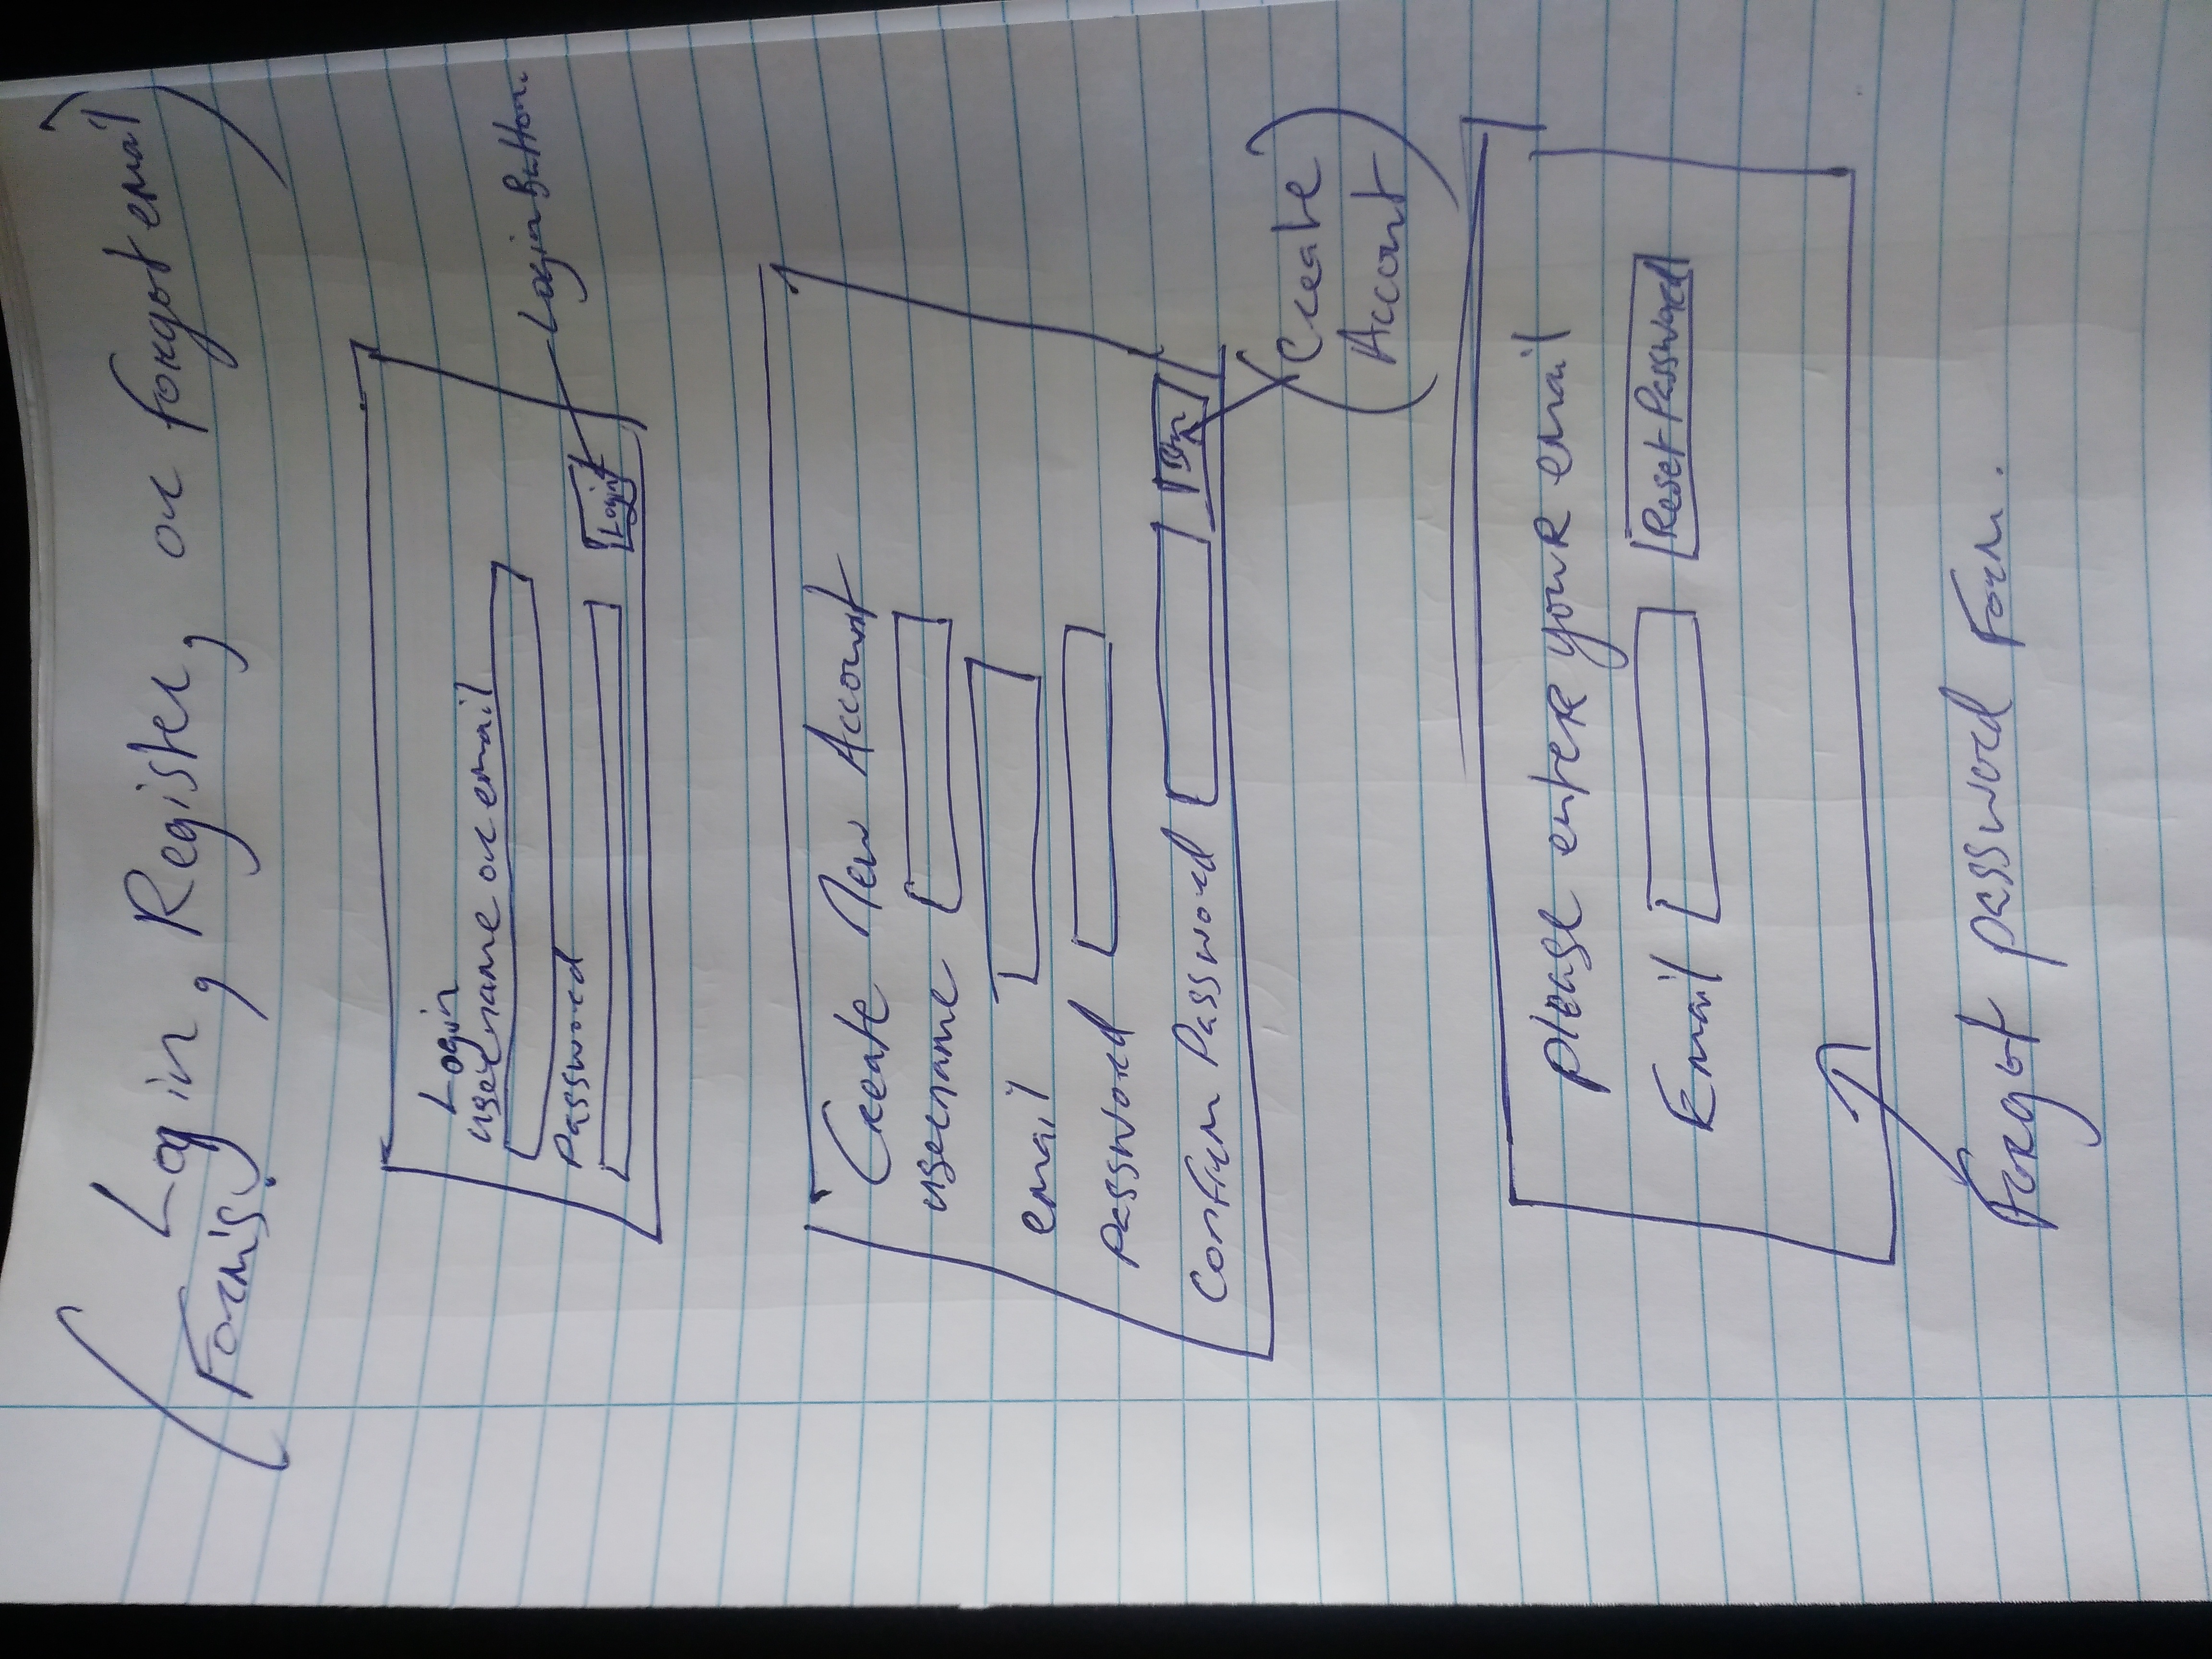 Login, Register, or forgot email
Forms.
Login
username or email
Password
Login
Login Button
Create New Account
username
email
password
Confirm Password
Btn
Create
Account
please enter your email
Email
Reset Password
Forgot password Form.